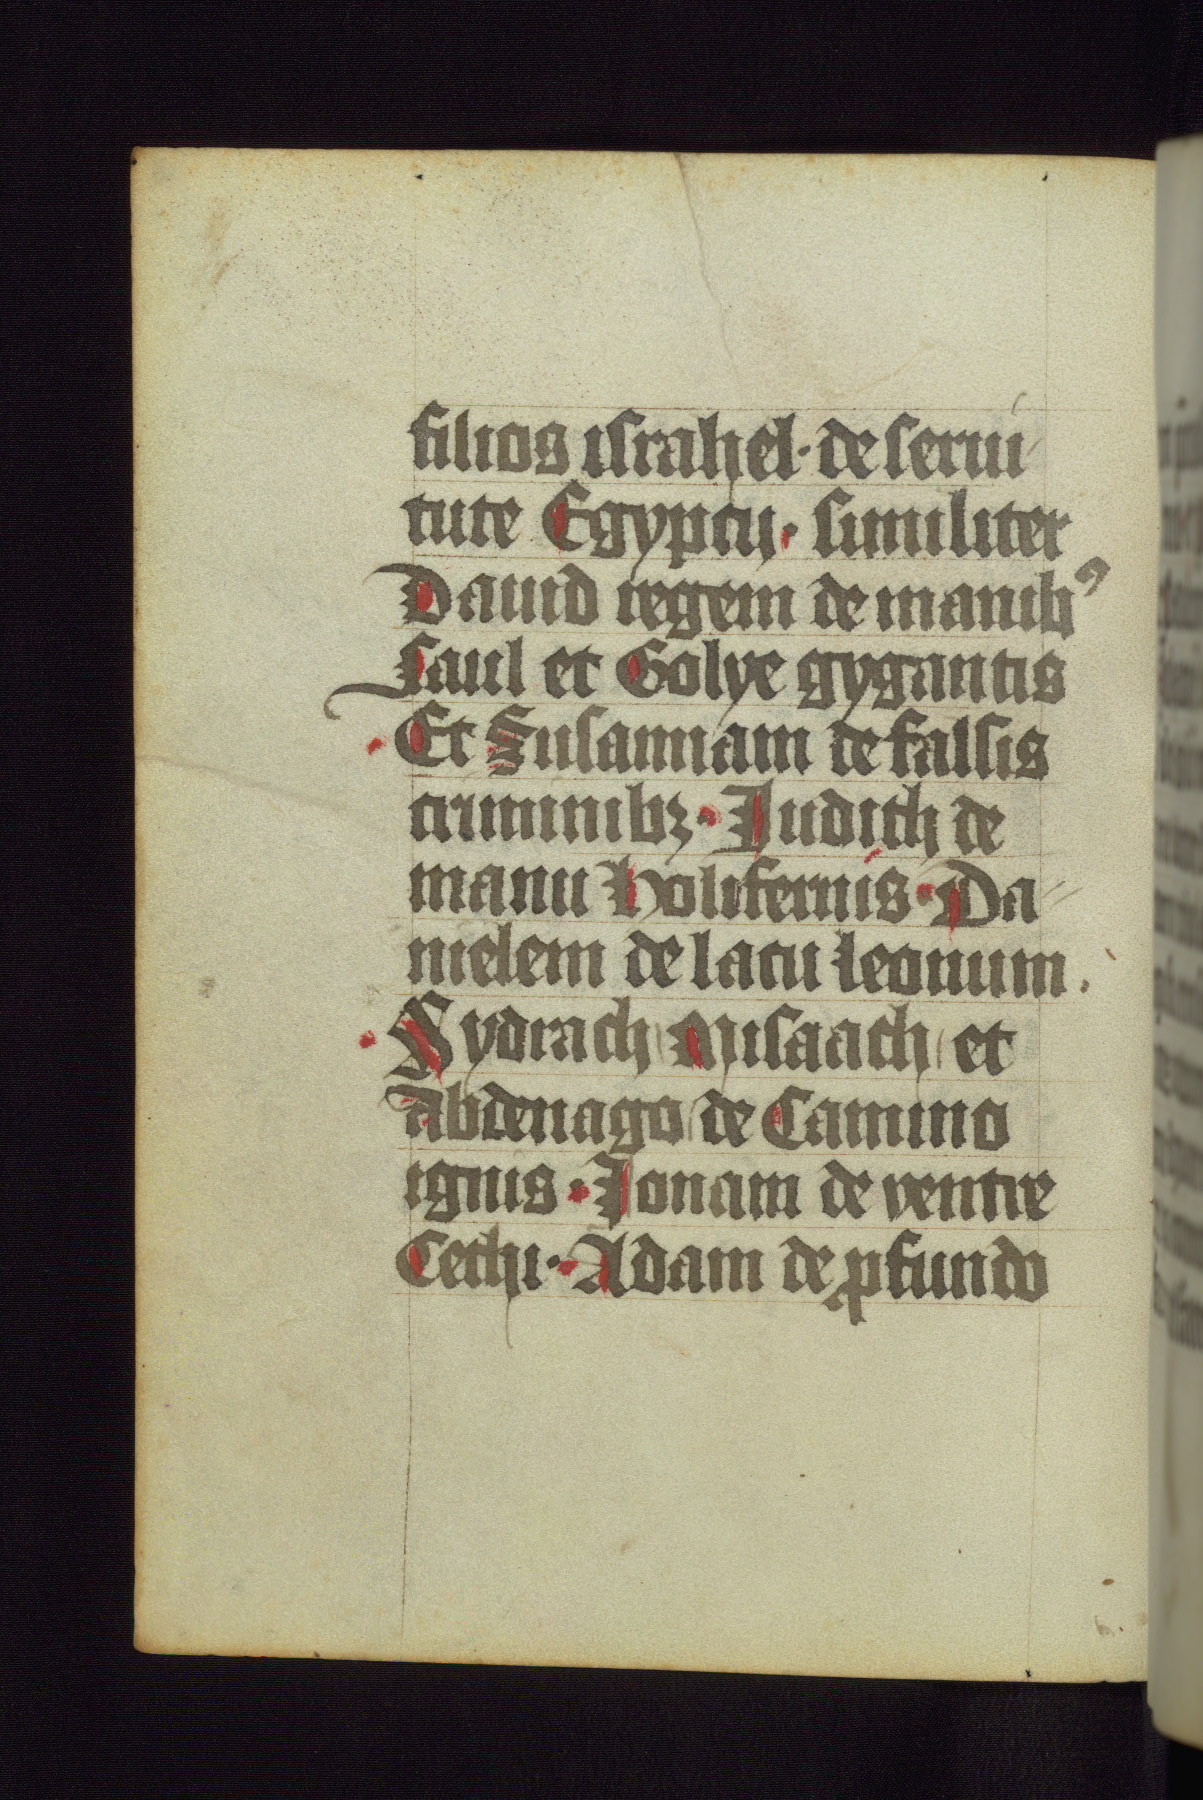 filios israhel · de serui
tute Egypcij · similiter
Dauid regem de manib9
Saul et Golye gygantis
· Et Susannam de falsis
criminibꝫ · Judith de
manu Holifernis · Da
nielem de lacu leonum .
· Sydrach Misaach et
Abdenago de Camino
ignis · Jonam de ventre
Cethi · Adam de ꝓfundo